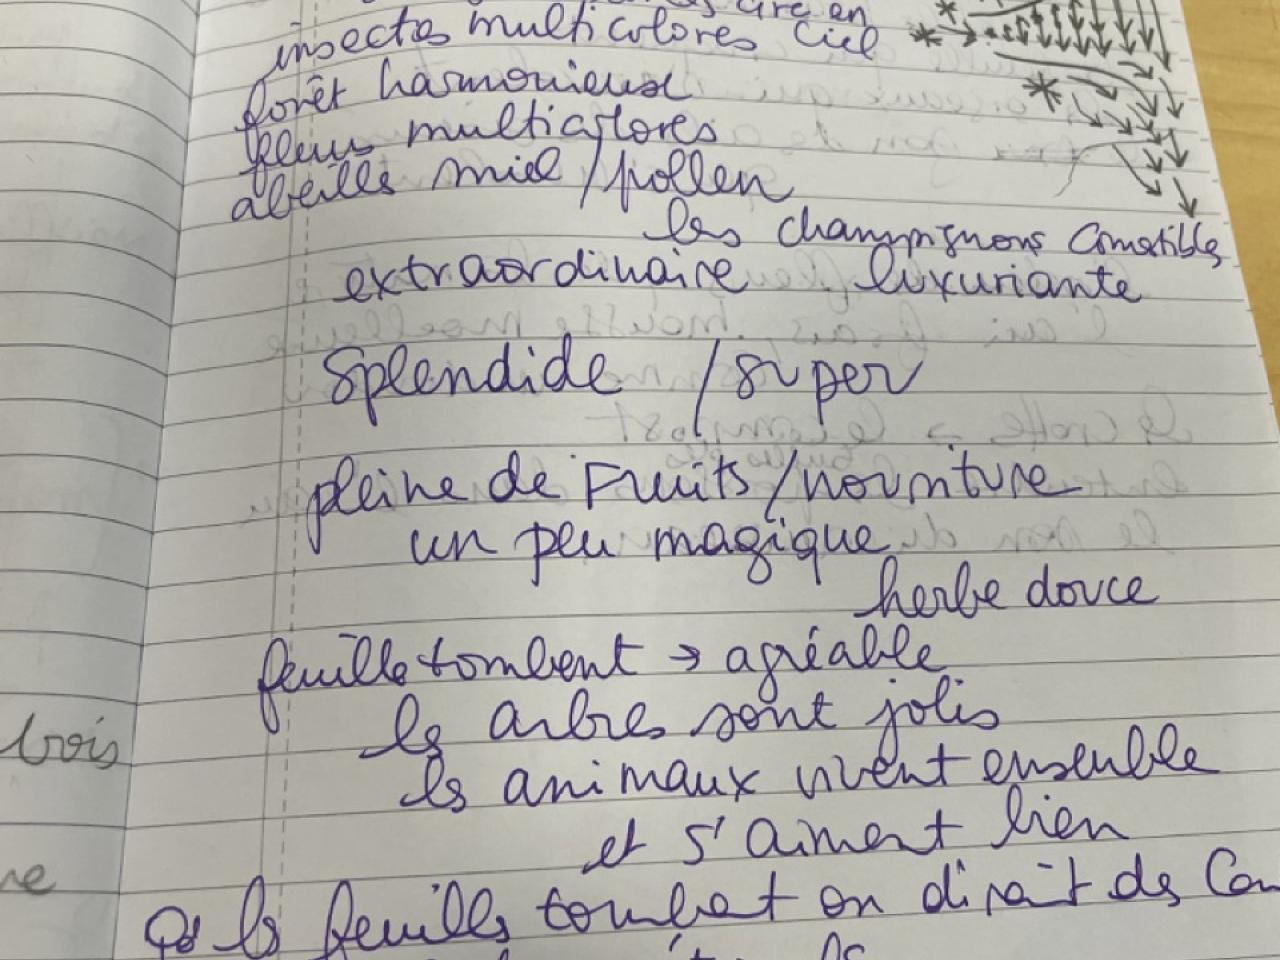 arc en
insectes multicolores ciel
forêt harmonieuse
fleurs multicolores
abeilles miel / pollen
les champignons comestibles
extraordinaire luxuriante
splendide / super
pleine de Fruits / nourriture
un peu magique
herbe douce
feuille tombent → agréable
les arbres sont jolis
les animaux vivent ensemble
et s'aiment bien
Qd les feuilles tombent on dirait des Con
bois
ne